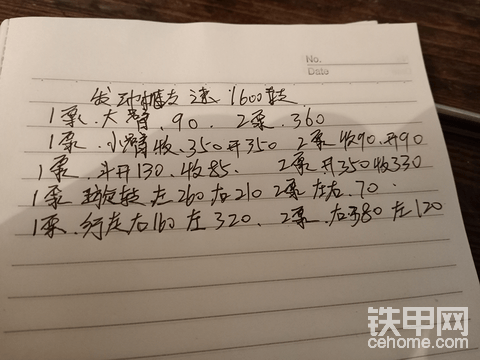 No.
Date
发动机转速 1600转
1泵.大臂.90. 2泵.360
1泵.小臂收.350开350 2泵收90.开90
1泵.斗开130.收85. 2泵开350收330
1泵 旋转.左260右210 2泵左右.70.
1泵.行走右160左320. 2泵.右380左120
铁甲网
cehome.com